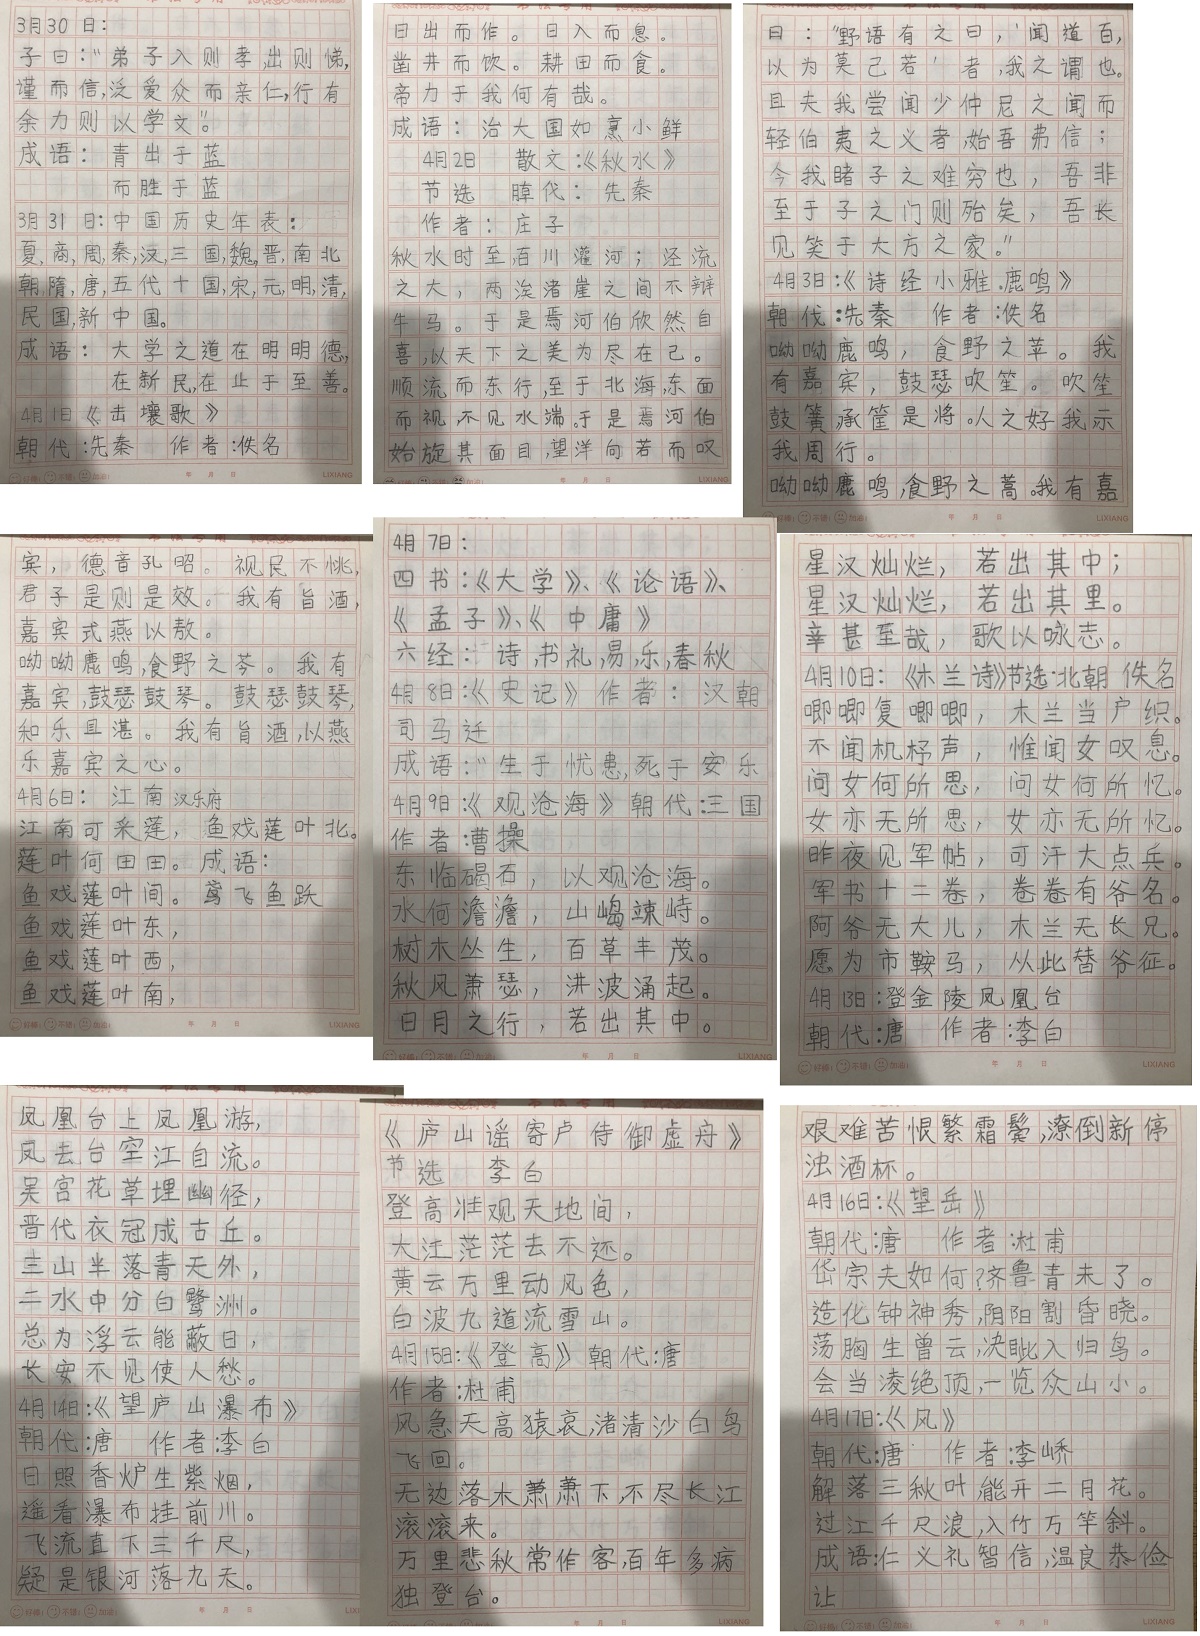 3月30日:
子曰:"弟子入则孝,出则悌,
谨而信,泛爱众而亲仁,行有
余力则以学文"。
成语: 青出于蓝
而胜于蓝
3月31日:中国历史年表:
夏,商,周,秦,汉,三国,魏,晋,南北
朝,隋,唐,五代十国,宋,元,明,清,
民国,新中国。
成语: 大学之道在明明德,
在新民,在止于至善。
4月1日《击壤歌》
朝代:先秦 作者:佚名
日出而作。日入而息。
凿井而饮。耕田而食。
帝力于我何有哉。
成语: 治大国如烹小鲜
4月2日 散文:《秋水》
节选 代: 先秦
作者: 庄子
秋水时至,百川灌河; 泾流
之大, 两涘渚崖之间不辩
牛马。于是焉河伯欣然自
喜,以天下之美为尽在己。
顺流而东行,至于北海,东面
而视,不见水端。于是焉河伯
始旋其面目,望洋向若而叹
曰: "野语有之曰,'闻道百,
以为莫己若'者,我之谓也。
且夫我尝闻少仲尼之闻而
轻伯夷之义者,始吾弗信;
今我睹子之难穷也, 吾非
至于子之门则殆矣, 吾长
见笑于大方之家。"
4月3日:《诗经小雅.鹿鸣》
朝代:先秦 作者:佚名
呦呦鹿鸣, 食野之苹。我
有嘉宾, 鼓瑟吹笙。吹笙
鼓簧承筐是将。人之好我示
我周行。
呦呦鹿鸣,食野之蒿。我有嘉
宾, 德音孔昭。视民不恌,
君子是则是效。我有旨酒,
嘉宾式燕以敖。
呦呦鹿鸣,食野之芩。我有
嘉宾,鼓瑟鼓琴。鼓瑟鼓琴,
和乐且湛。我有旨酒,以燕
乐嘉宾之心。
4月6日: 江南 汉乐府
江南可采莲, 鱼戏莲叶北。
莲叶何田田。成语:
鱼戏莲叶间。鸢飞鱼跃
鱼戏莲叶东,
鱼戏莲叶西,
鱼戏莲叶南,
4月7日:
四书:《大学》、《论语》、
《孟子》、《中庸》
六经: 诗,书,礼,易,乐,春秋
4月8日:《史记》作者: 汉朝
司马迁
成语:"生于忧患,死于安乐
4月9日:《观沧海》朝代:三国
作者:曹操
东临碣石, 以观沧海。
水何澹澹, 山岛竦峙。
树木丛生, 百草丰茂。
秋风萧瑟, 洪波涌起。
日月之行, 若出其中。
星汉灿烂, 若出其中;
星汉灿烂, 若出其里。
幸甚至哉, 歌以咏志。
4月10日: 《木兰诗》节选·北朝 佚名
唧唧复唧唧, 木兰当户织。
不闻机杼声, 惟闻女叹息。
问女何所思, 问女何所忆。
女亦无所思, 女亦无所忆。
昨夜见军帖, 可汗大点兵。
军书十二卷, 卷卷有爷名。
阿爷无大儿, 木兰无长兄。
愿为市鞍马, 从此替爷征。
4月13日:登金陵凤凰台
朝代:唐 作者:李白
凤凰台上凤凰游,
凤去台空江自流。
吴宫花草埋幽径,
晋代衣冠成古丘。
三山半落青天外,
二水中分白鹭洲。
总为浮云能蔽日,
长安不见使人愁。
4月14日:《望庐山瀑布》
朝代:唐 作者:李白
日照香炉生紫烟,
遥看瀑布挂前川。
飞流直下三千尺,
疑是银河落九天。
《庐山谣寄卢侍御虚舟》
节选 李白
登高壮观天地间,
大江茫茫去不还。
黄云万里动风色,
白波九道流雪山。
4月15日:《登高》朝代:唐
作者:杜甫
风急天高猿哀,渚清沙白鸟
飞回。
无边落木萧萧下,不尽长江
滚滚来。
万里悲秋常作客,百年多病
独登台。
艰难苦恨繁霜鬓,潦倒新停
浊酒杯。
4月16日:《望岳》
朝代:唐 作者:杜甫
岱宗夫如何?齐鲁青未了。
造化钟神秀,阴阳割昏晓。
荡胸生曾云,决眦入归鸟。
会当凌绝顶,一览众山小。
4月17日:《风》
朝代:唐 作者:李峤
解落三秋叶,能开二月花。
过江千尺浪,入竹万竿斜。
成语:仁义礼智信,温良恭俭
让